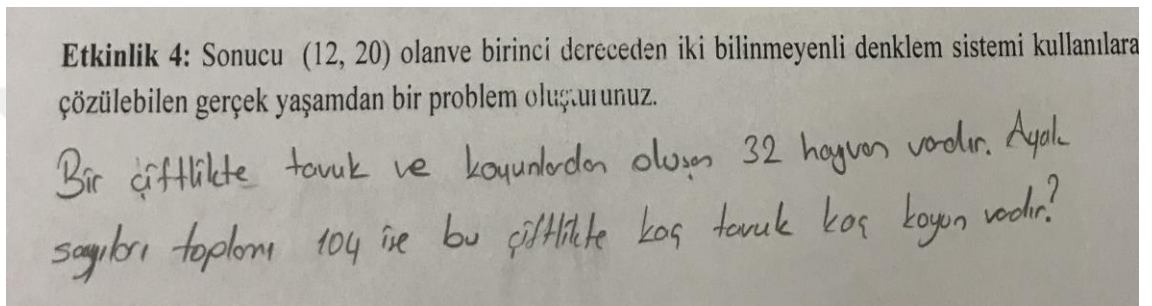 Etkinlik 4: Sonucu (12, 20) olanve birinci dereceden iki bilinmeyenli denklem sistemi kullanılara
çözülebilen gerçek yaşamdan bir problem oluşturunuz.
Bir çiftlikte tavuk ve koyunlardan oluşan 32 hayvan vardır. Ayak
sayıları toplamı 104 ise bu çiftlikte kaç tavuk kaç koyun vardır?